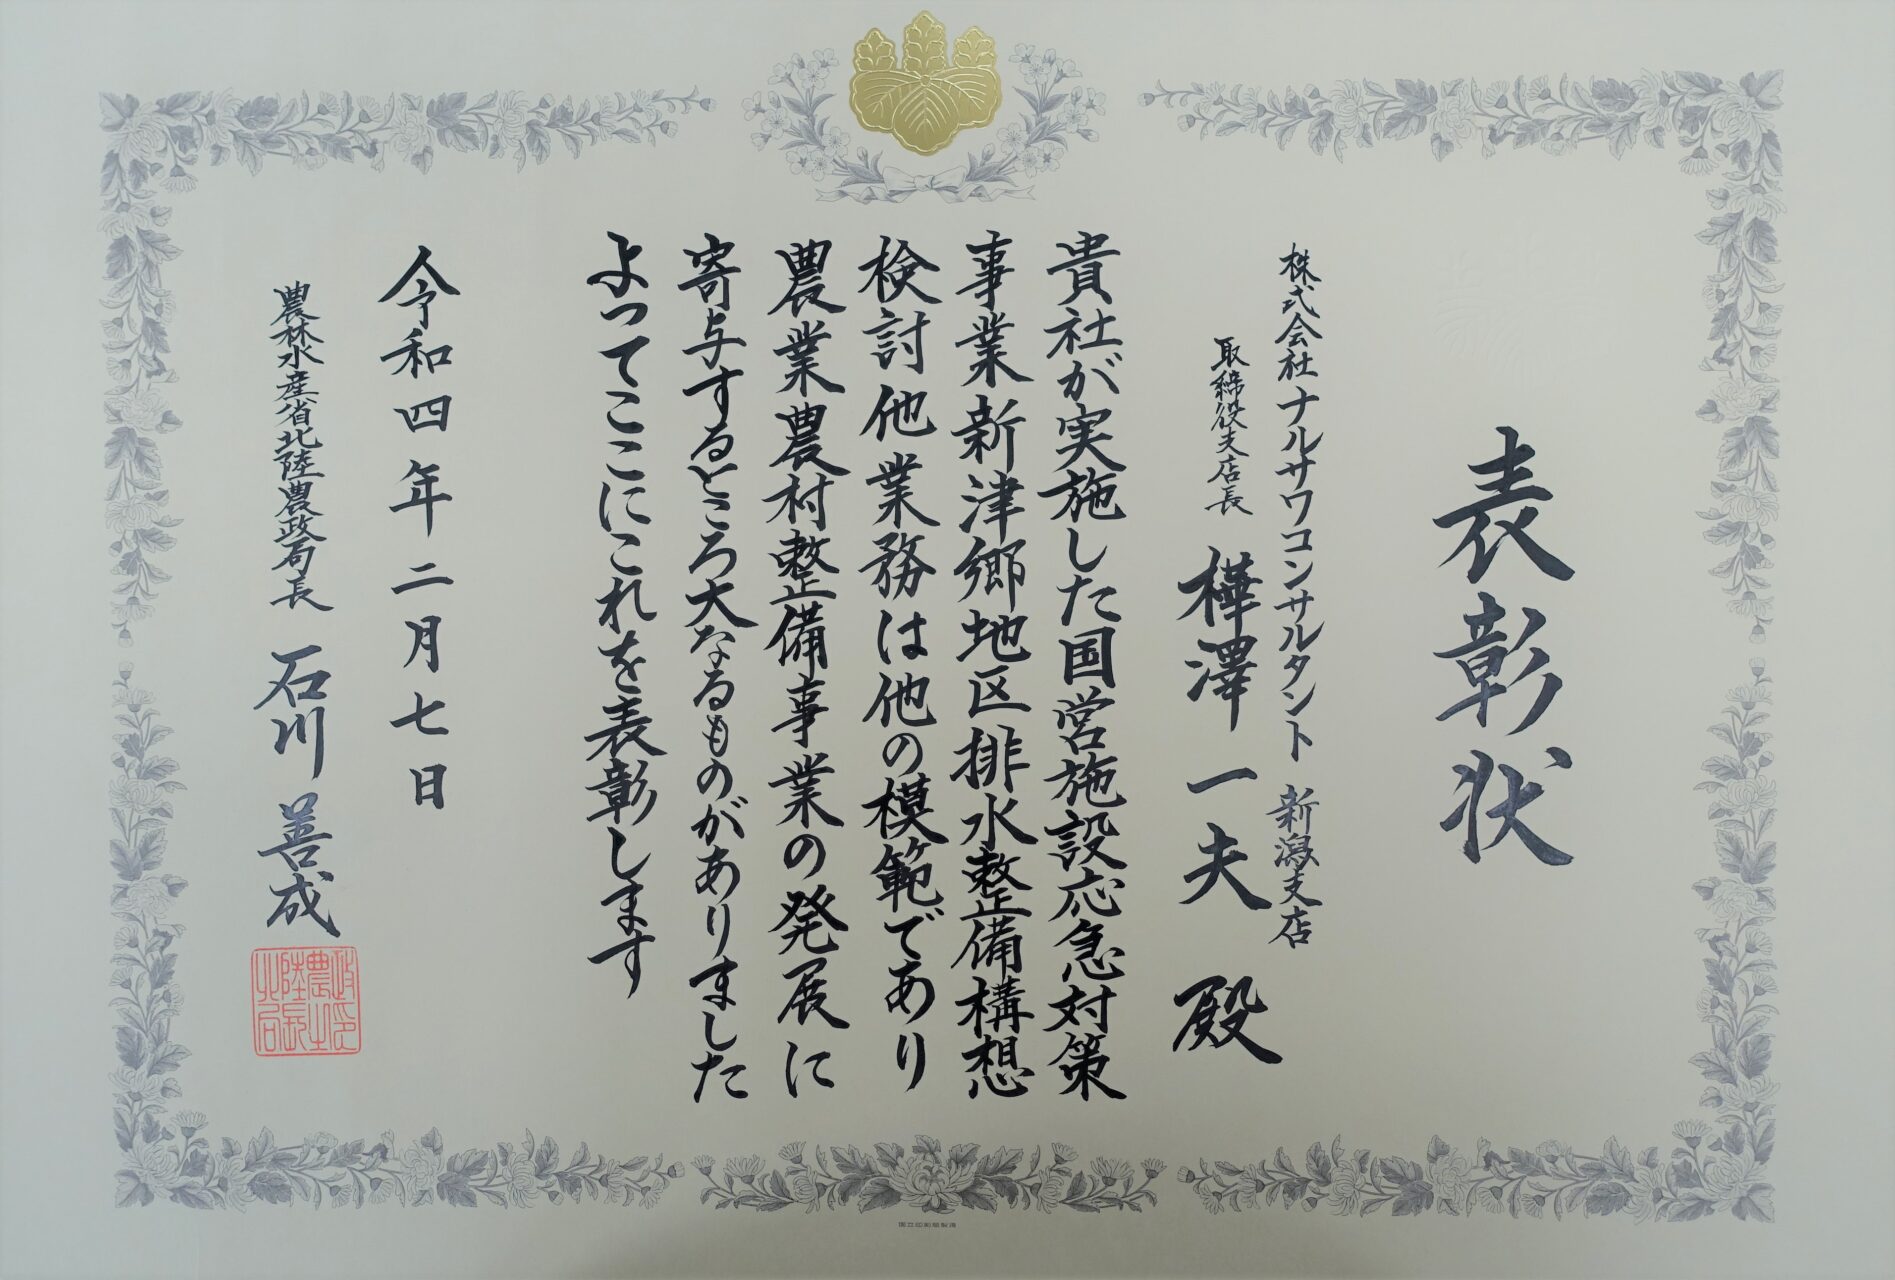 表彰状
株式会社ナルサワコンサルタント 新潟支店
取締役支店長 樺澤一夫 殿
貴社が実施した国営施設応急対策
事業新津郷地区排水整備構想
検討他業務は他の模範であり
農業農村整備事業の発展に
寄与するところ大なるものがありました
よってここにこれを表彰します
令和四年二月七日
農林水産省北陸農政局長 石川善成
北陸農政局長之印
国立印刷局製造